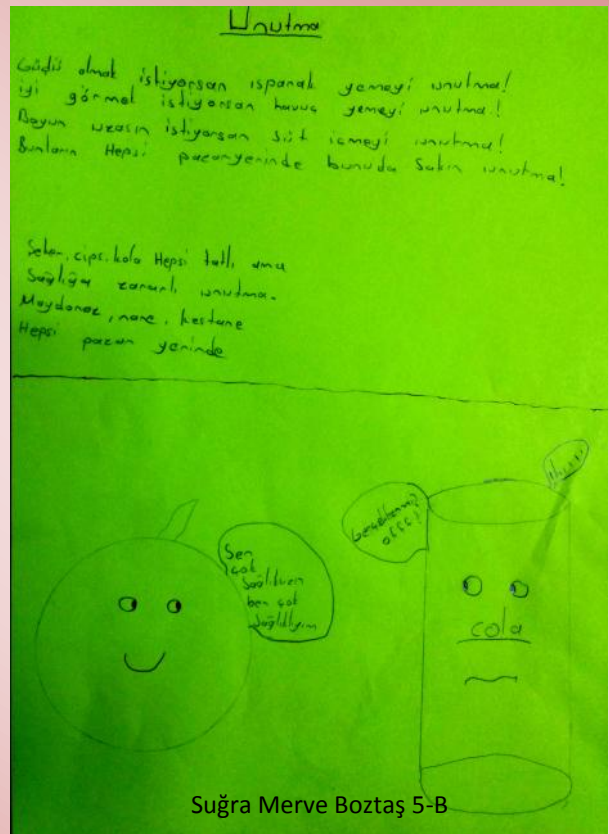 Unutma
Güçlü olmak istiyorsan ıspanak yemeyi unutma!
iyi görmek istiyorsan havuç yemeyi unutma!
Boyun uzasın istiyorsan süt içmeyi unutma!
Bunların Hepsi pazaryerinde bunuda Sakın unutma!
Şeker, cips, kola Hepsi tatlı ama
Sağlığa zararlı unutma.
Maydanoz, nane, kestane
Hepsi pazar yerinde
Sen
çok
ben çok
sağlıklıyım
cola
Suğra Merve Boztaş 5-B